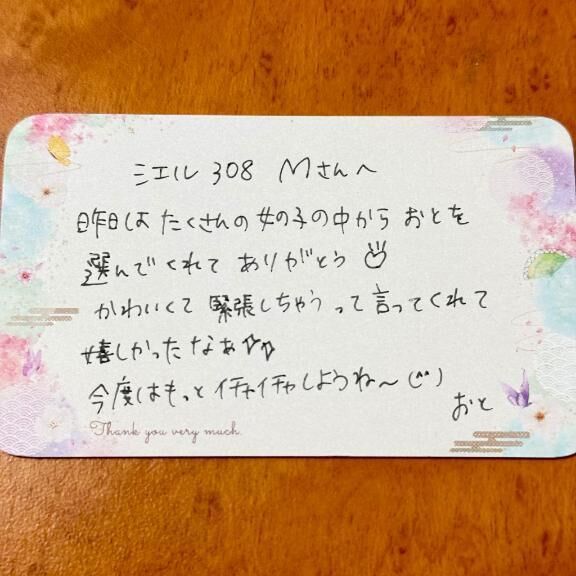 ミエル 308 Mさんへ
昨日は たくさんの 女の子の中から おとを
選んでくれて ありがとう
かわいくて 緊張しちゃうって言ってくれて
嬉しかったなぁ☆☆
今度はもっと イチャイチャしようね〜
おと
Thank you very much.